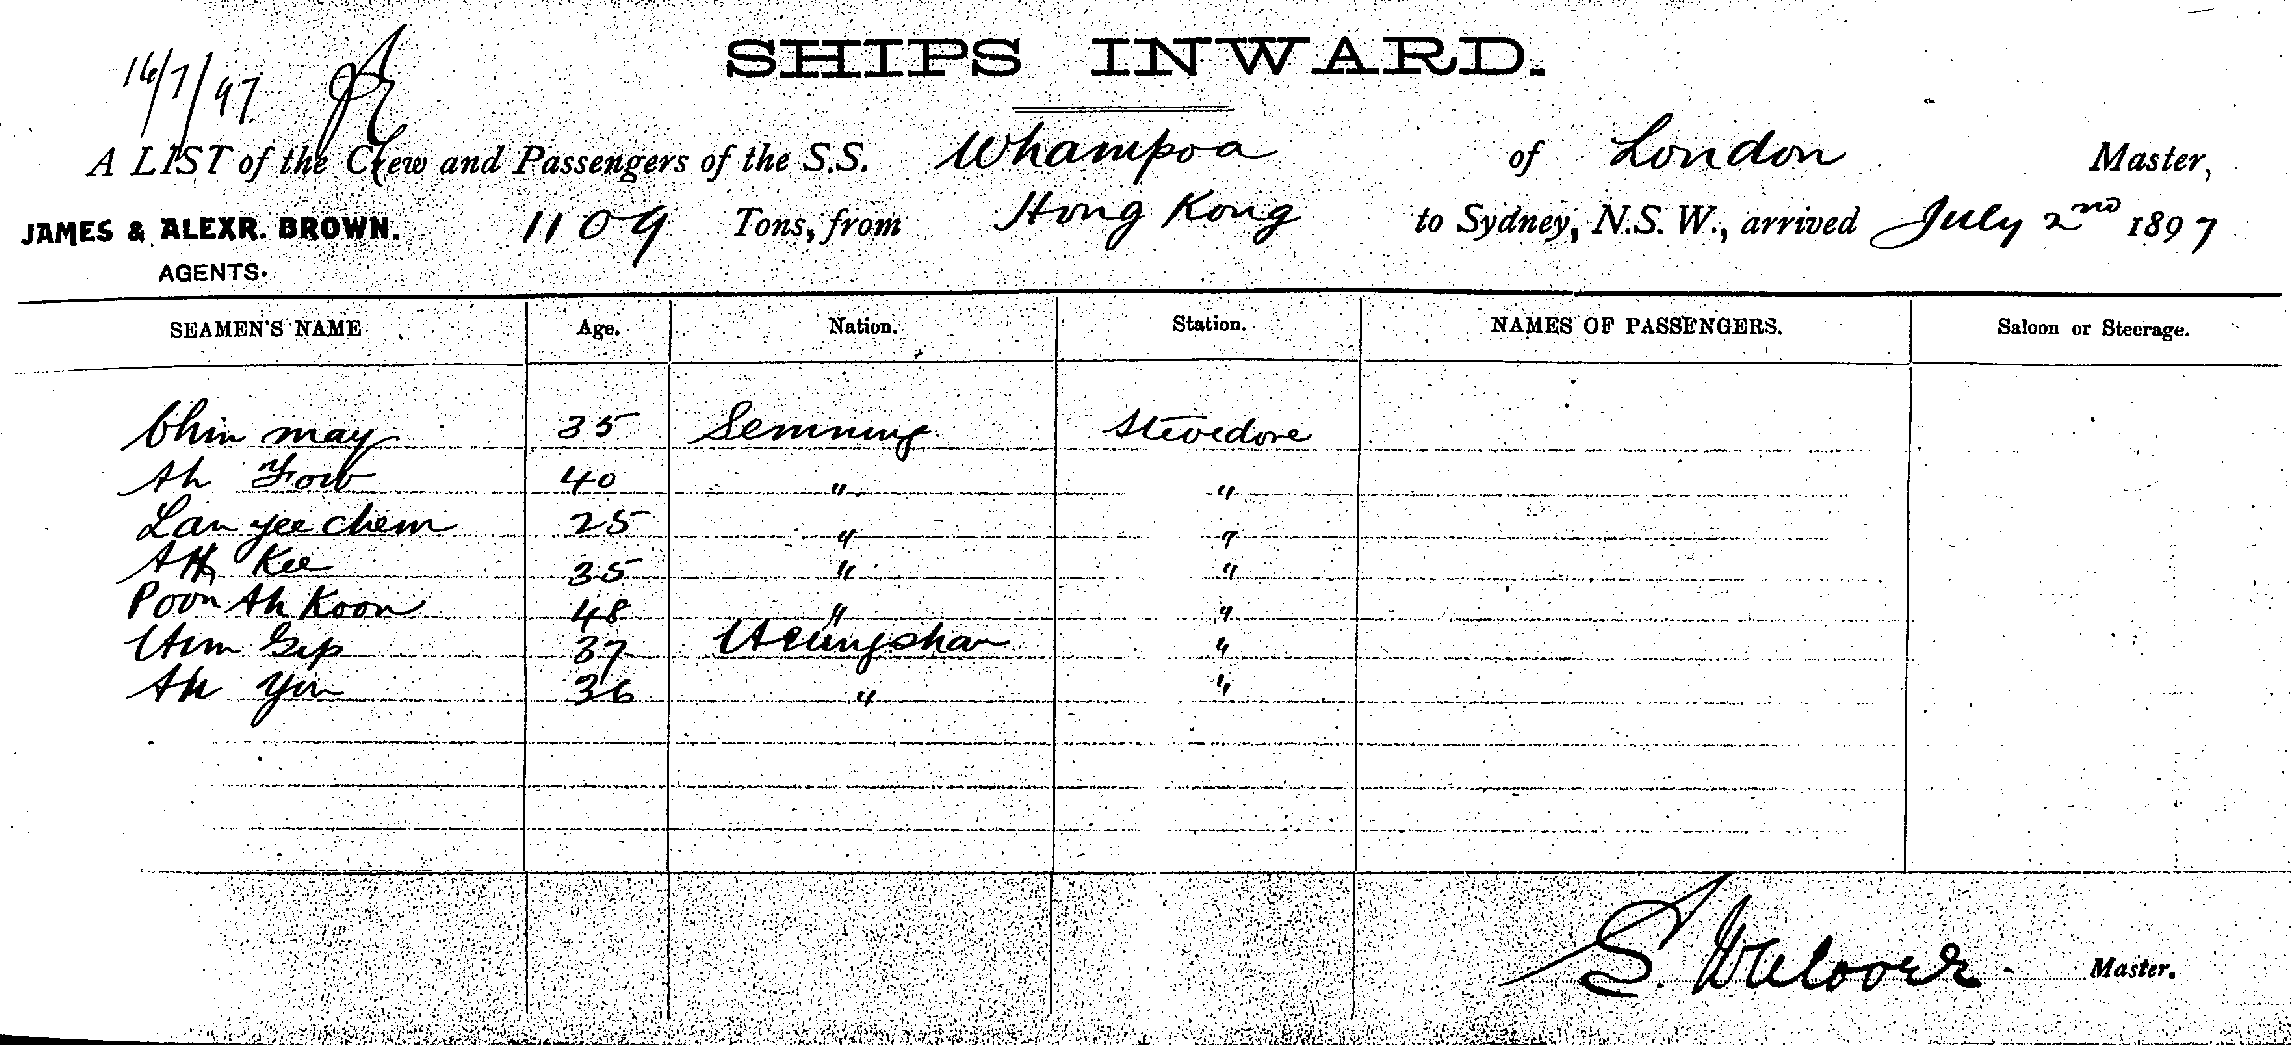 SHIPS INWARD.
16/7/97
A LIST of the Crew and Passengers of the S.S. Whampoa of London Master,
JAMES & ALEXR. BROWN. 1109 Tons, from Hong Kong to Sydney, N.S.W., arrived July 2nd 1897
AGENTS.
SEAMEN'S NAME Age. Nation. Station. NAMES OF PASSENGERS. Saloon or Steerage.
Chin may 35 Stevedore
Ah 40 " "
Lan yee chem 25 " "
Kee 35 " "
Poon Ah Koon 48 " "
Gip 37 "
Ah Yin 36 " "
S. Master.